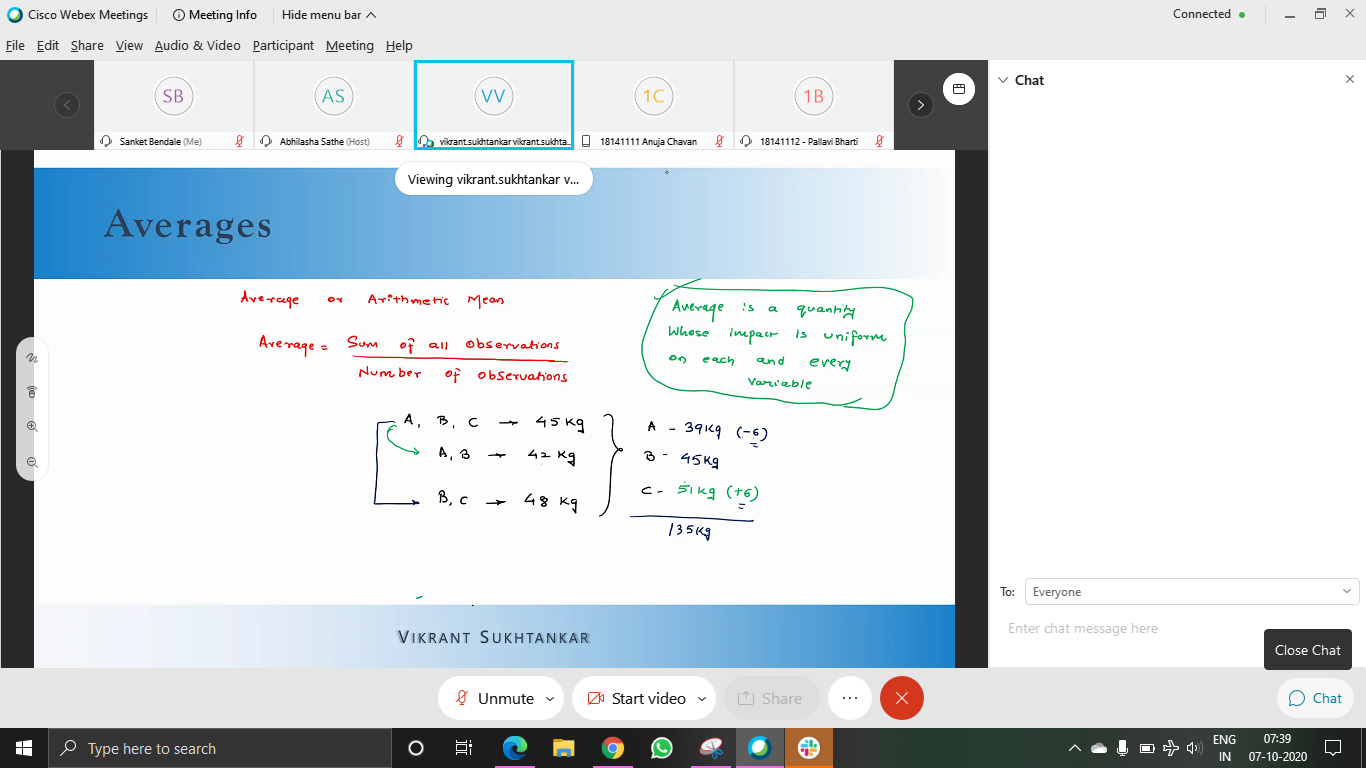 Cisco Webex Meetings
Meeting Info
Hide menu bar
Connected
File Edit Share View Audio & Video Participant Meeting Help
SB
AS
VV
1C
1B
Sanket Bendale (Me)
Abhilasha Sathe (Host)
vikrant.sukhtankar vikrant.sukhta...
18141111 Anuja Chavan
18141112 - Pallavi Bharti
Chat
Viewing vikrant.sukhtankar v...
Averages
Average or Arithmetic Mean
Average = Sum of all observations
Number of observations
Average is a quantity
Whose impact is uniform
on each and every
variable
A, B, C → 45 Kg
A, B → 42 Kg
B, C → 48 Kg
A - 39Kg (-6)
B - 45Kg
C - 51Kg (+6)
135Kg
VIKRANT SUKHTANKAR
To: Everyone
Enter chat message here
Close Chat
Unmute
Start video
Share
Chat
Type here to search
ENG
IN
07:39
07-10-2020